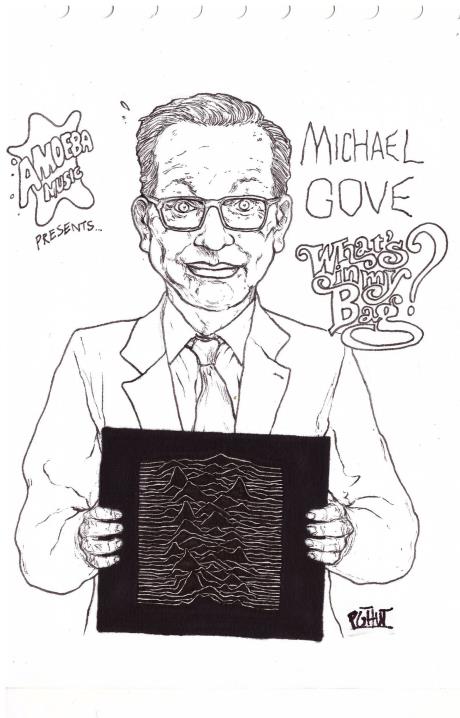 AMOEBA
MUSIC
PRESENTS...
MICHAEL
GOVE
What's
in my
Bag?